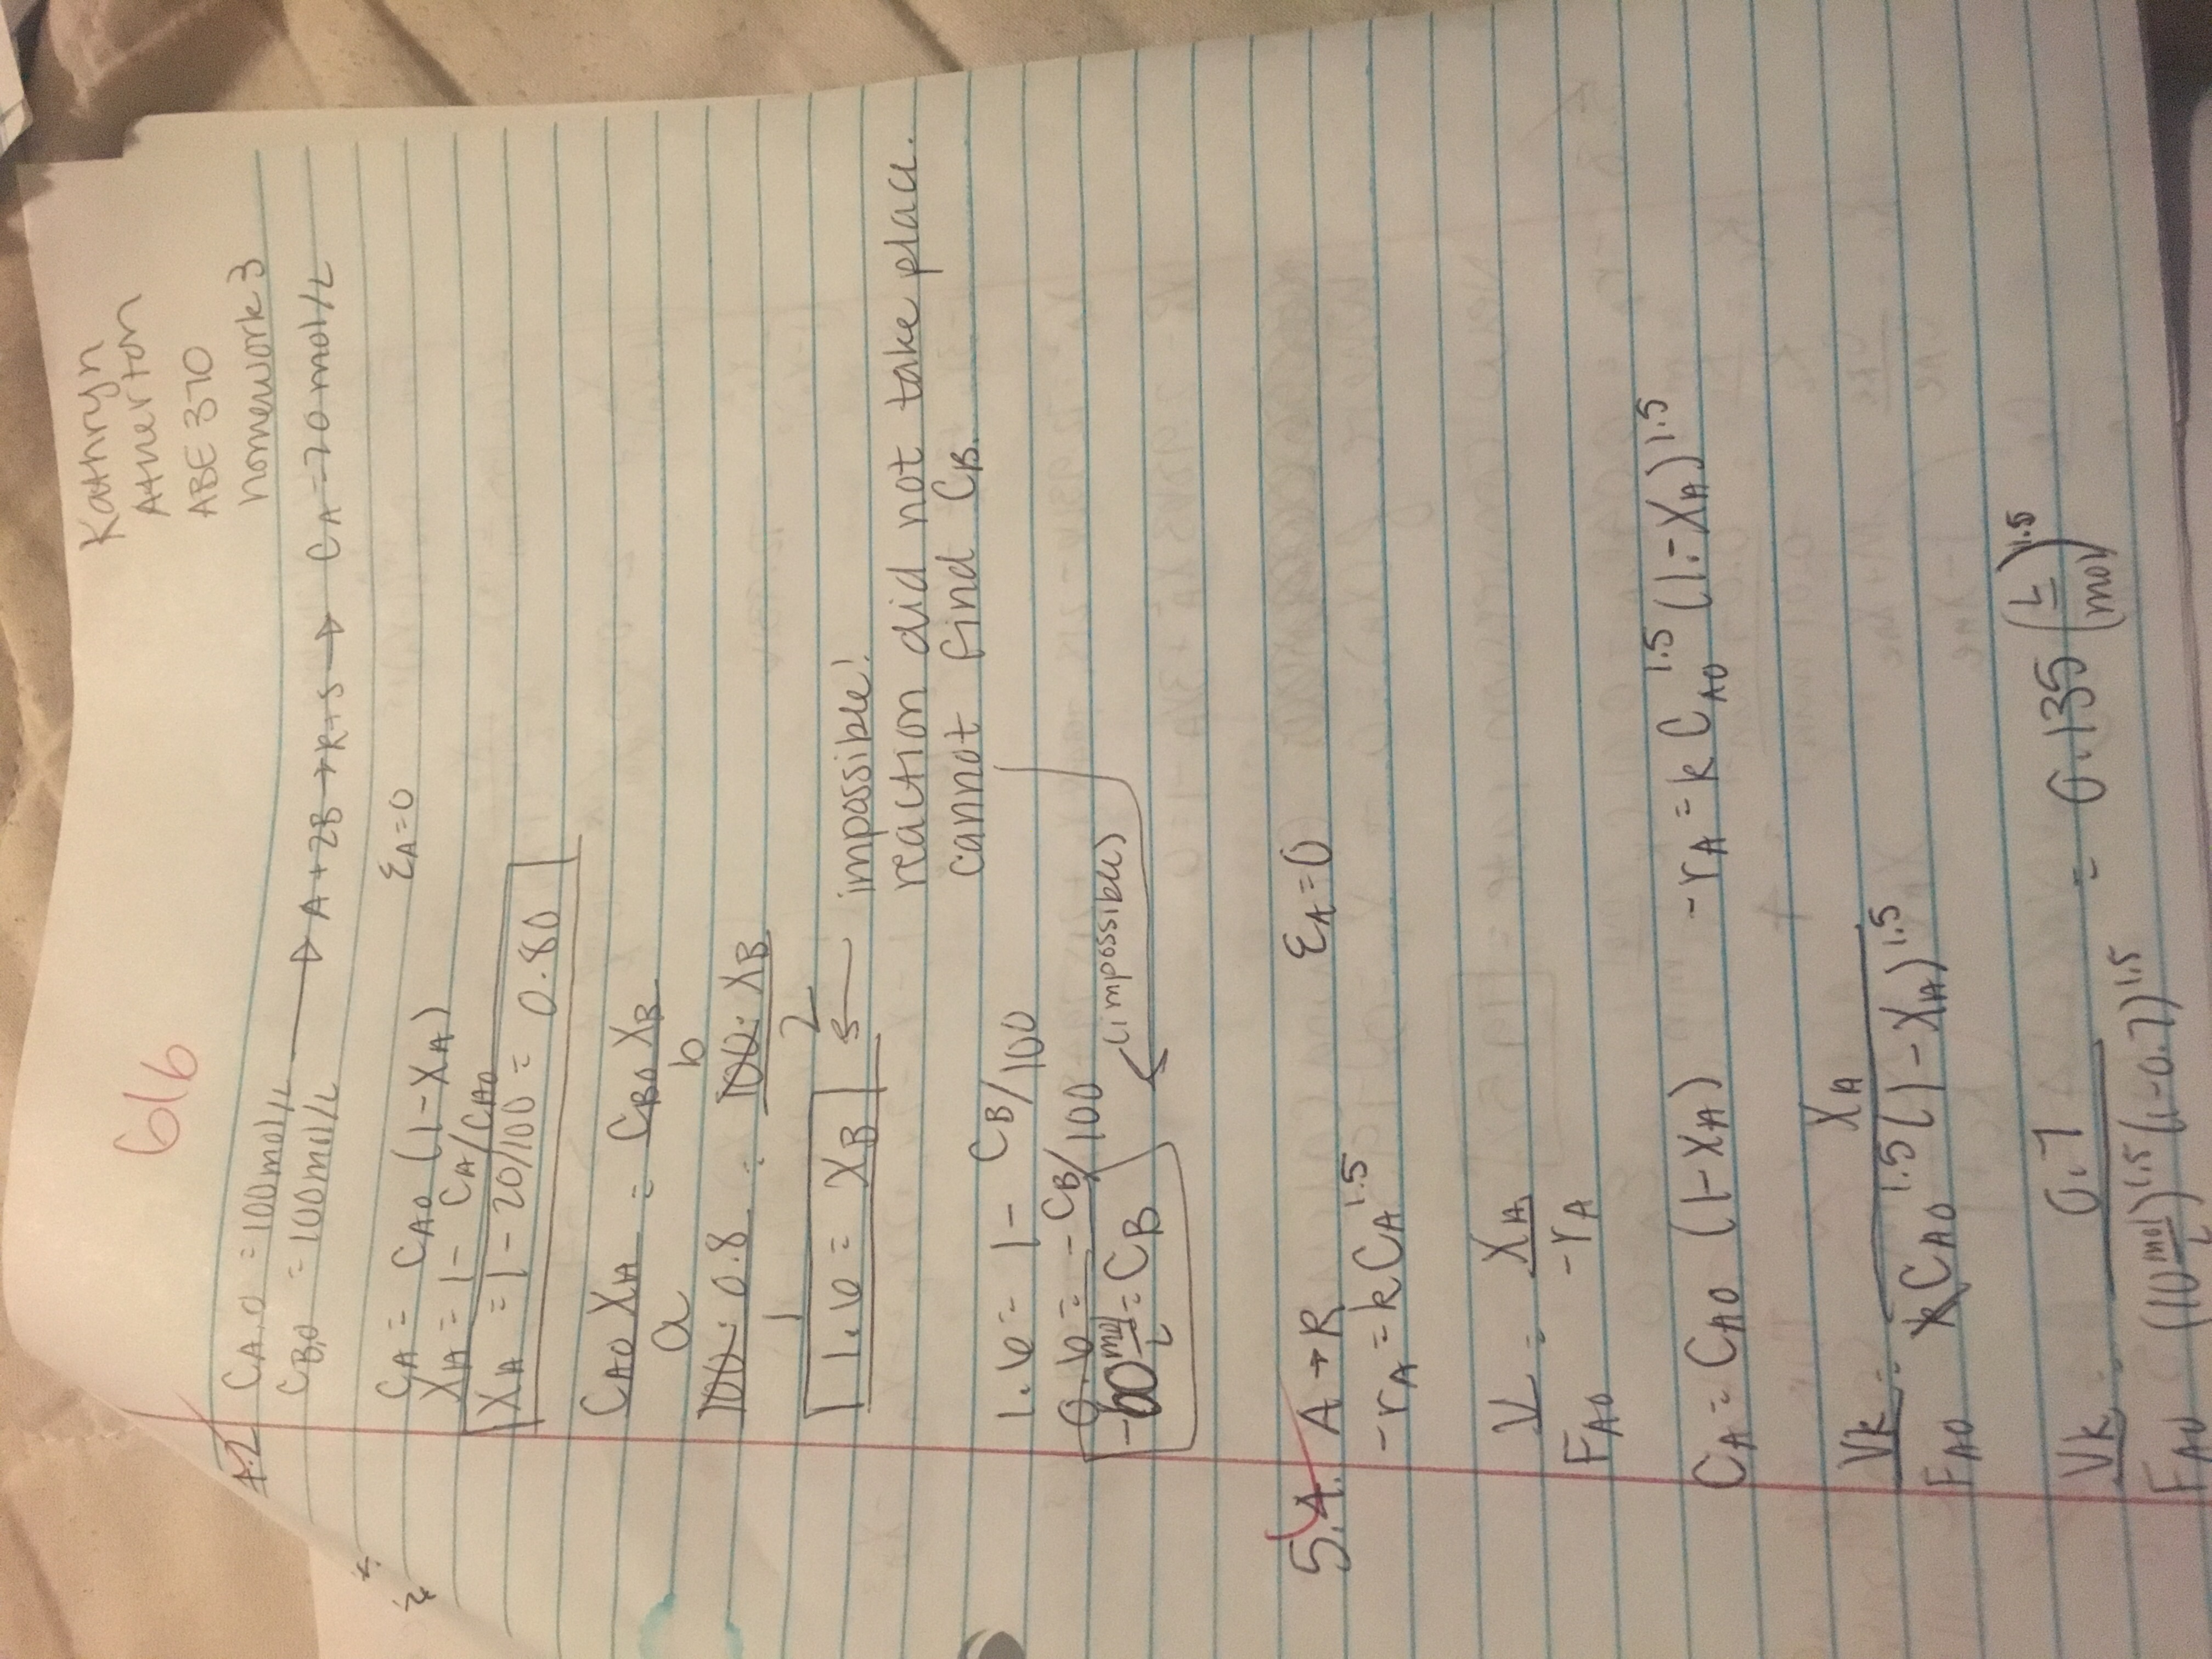 6/6
Kathryn
Atherton
ABE 370
homework 3
4.2 CA,0 = 100mol/L
CB,0 = 100mol/L → A + 2B → R+S → CA = 20 mol/L
CA = CA0 (1-XA) εA=0
XA = 1 - CA/CA0
XA = 1 - 20/100 = 0.80
CA0 XA / a = CB0 XB / b
100 · 0.8 / 1 = 100 · XB / 2
1.6 = XB ← impossible!
reaction did not take place.
cannot find CB.
1.6 = 1 - CB/100
0.6 = -CB/100
-60 mol/L = CB (impossible)
5.4. A → R εA=0
-rA = kCA^1.5
V/FA0 = XA/-rA
CA = CA0 (1-XA) -rA = k CA0^1.5 (1-XA)^1.5
Vk/FA0 = XA / kCA0^1.5 (1-XA)^1.5
Vk/FA0 = 0.7 / (10 mol/L)^1.5 (1-0.7)^1.5 = 0.135 (L/mol)^1.5